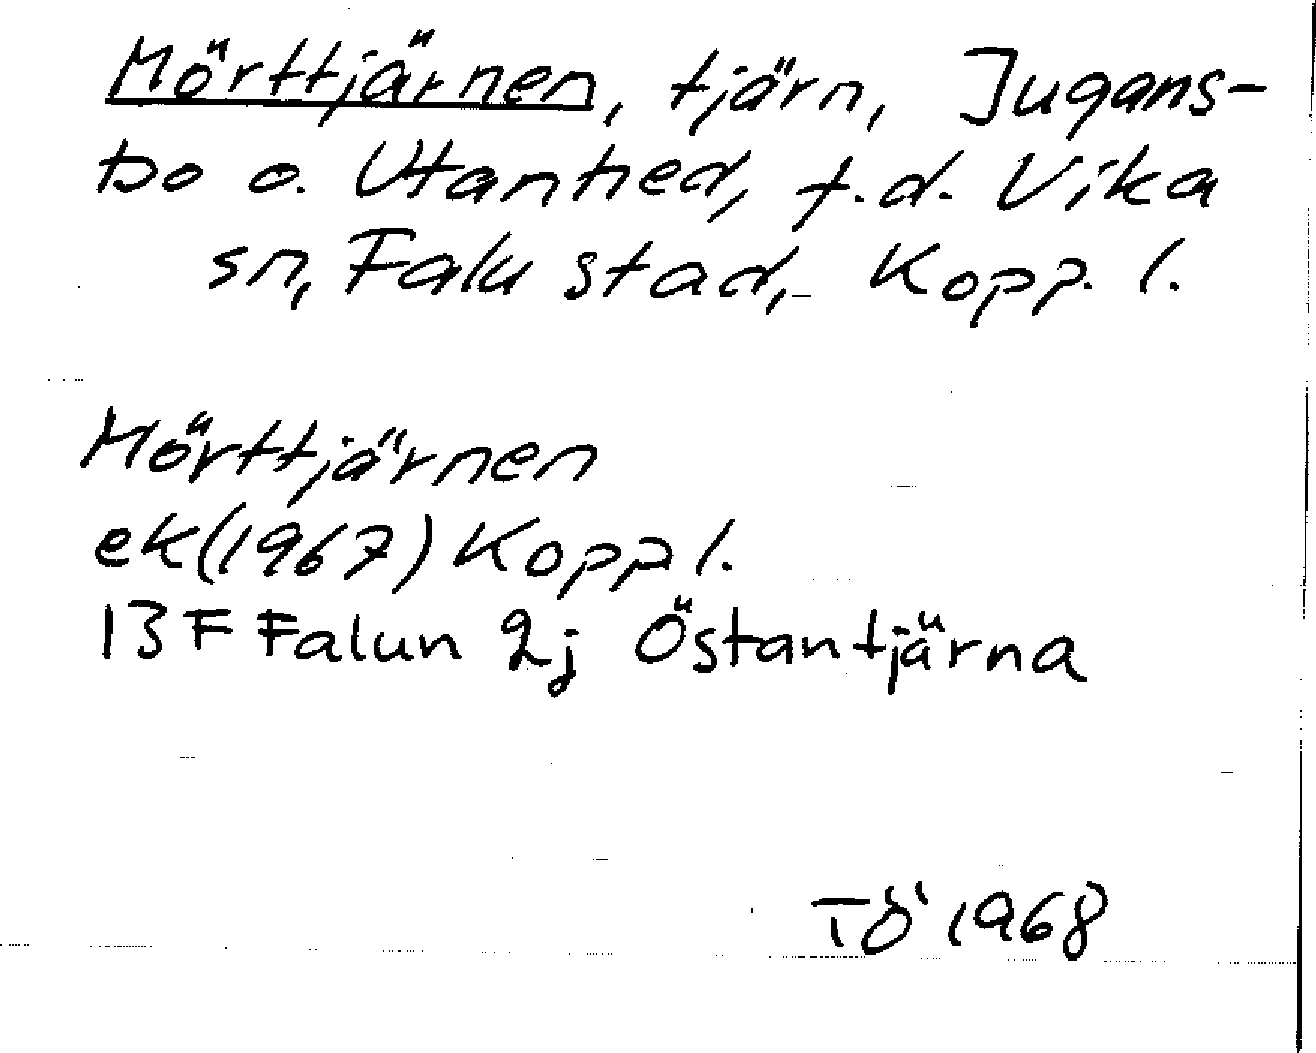 Mörttjärnen, tjärn, Jugans-
bo o. Utanhed, f.d. Vika
sn, Falu stad, Kopp. l.
Mörttjärnen
ek(1967) Kopp l.
13 F Falun 2j Östantjärna
TÖ 1968